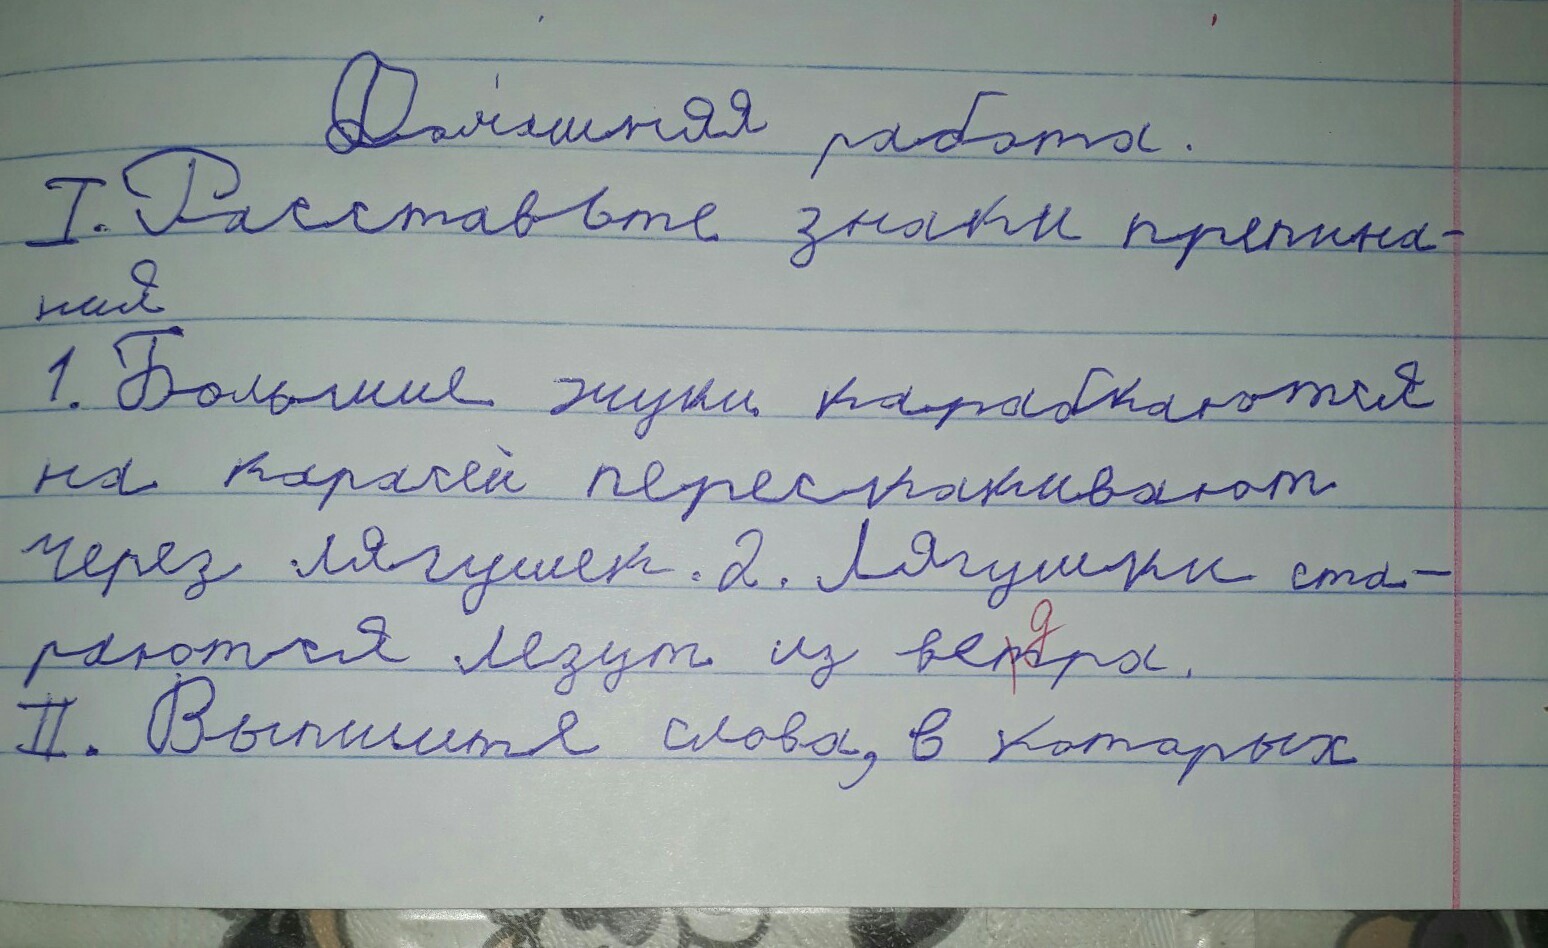 Домашняя работа.
I. Расставьте знаки препина-
ния
1. Большие жуки карабкаются
на карачей перескакивают
через лягушек. 2. Лягушки ста-
раются лезут из ведра.
II. Выпишите слова, в которых